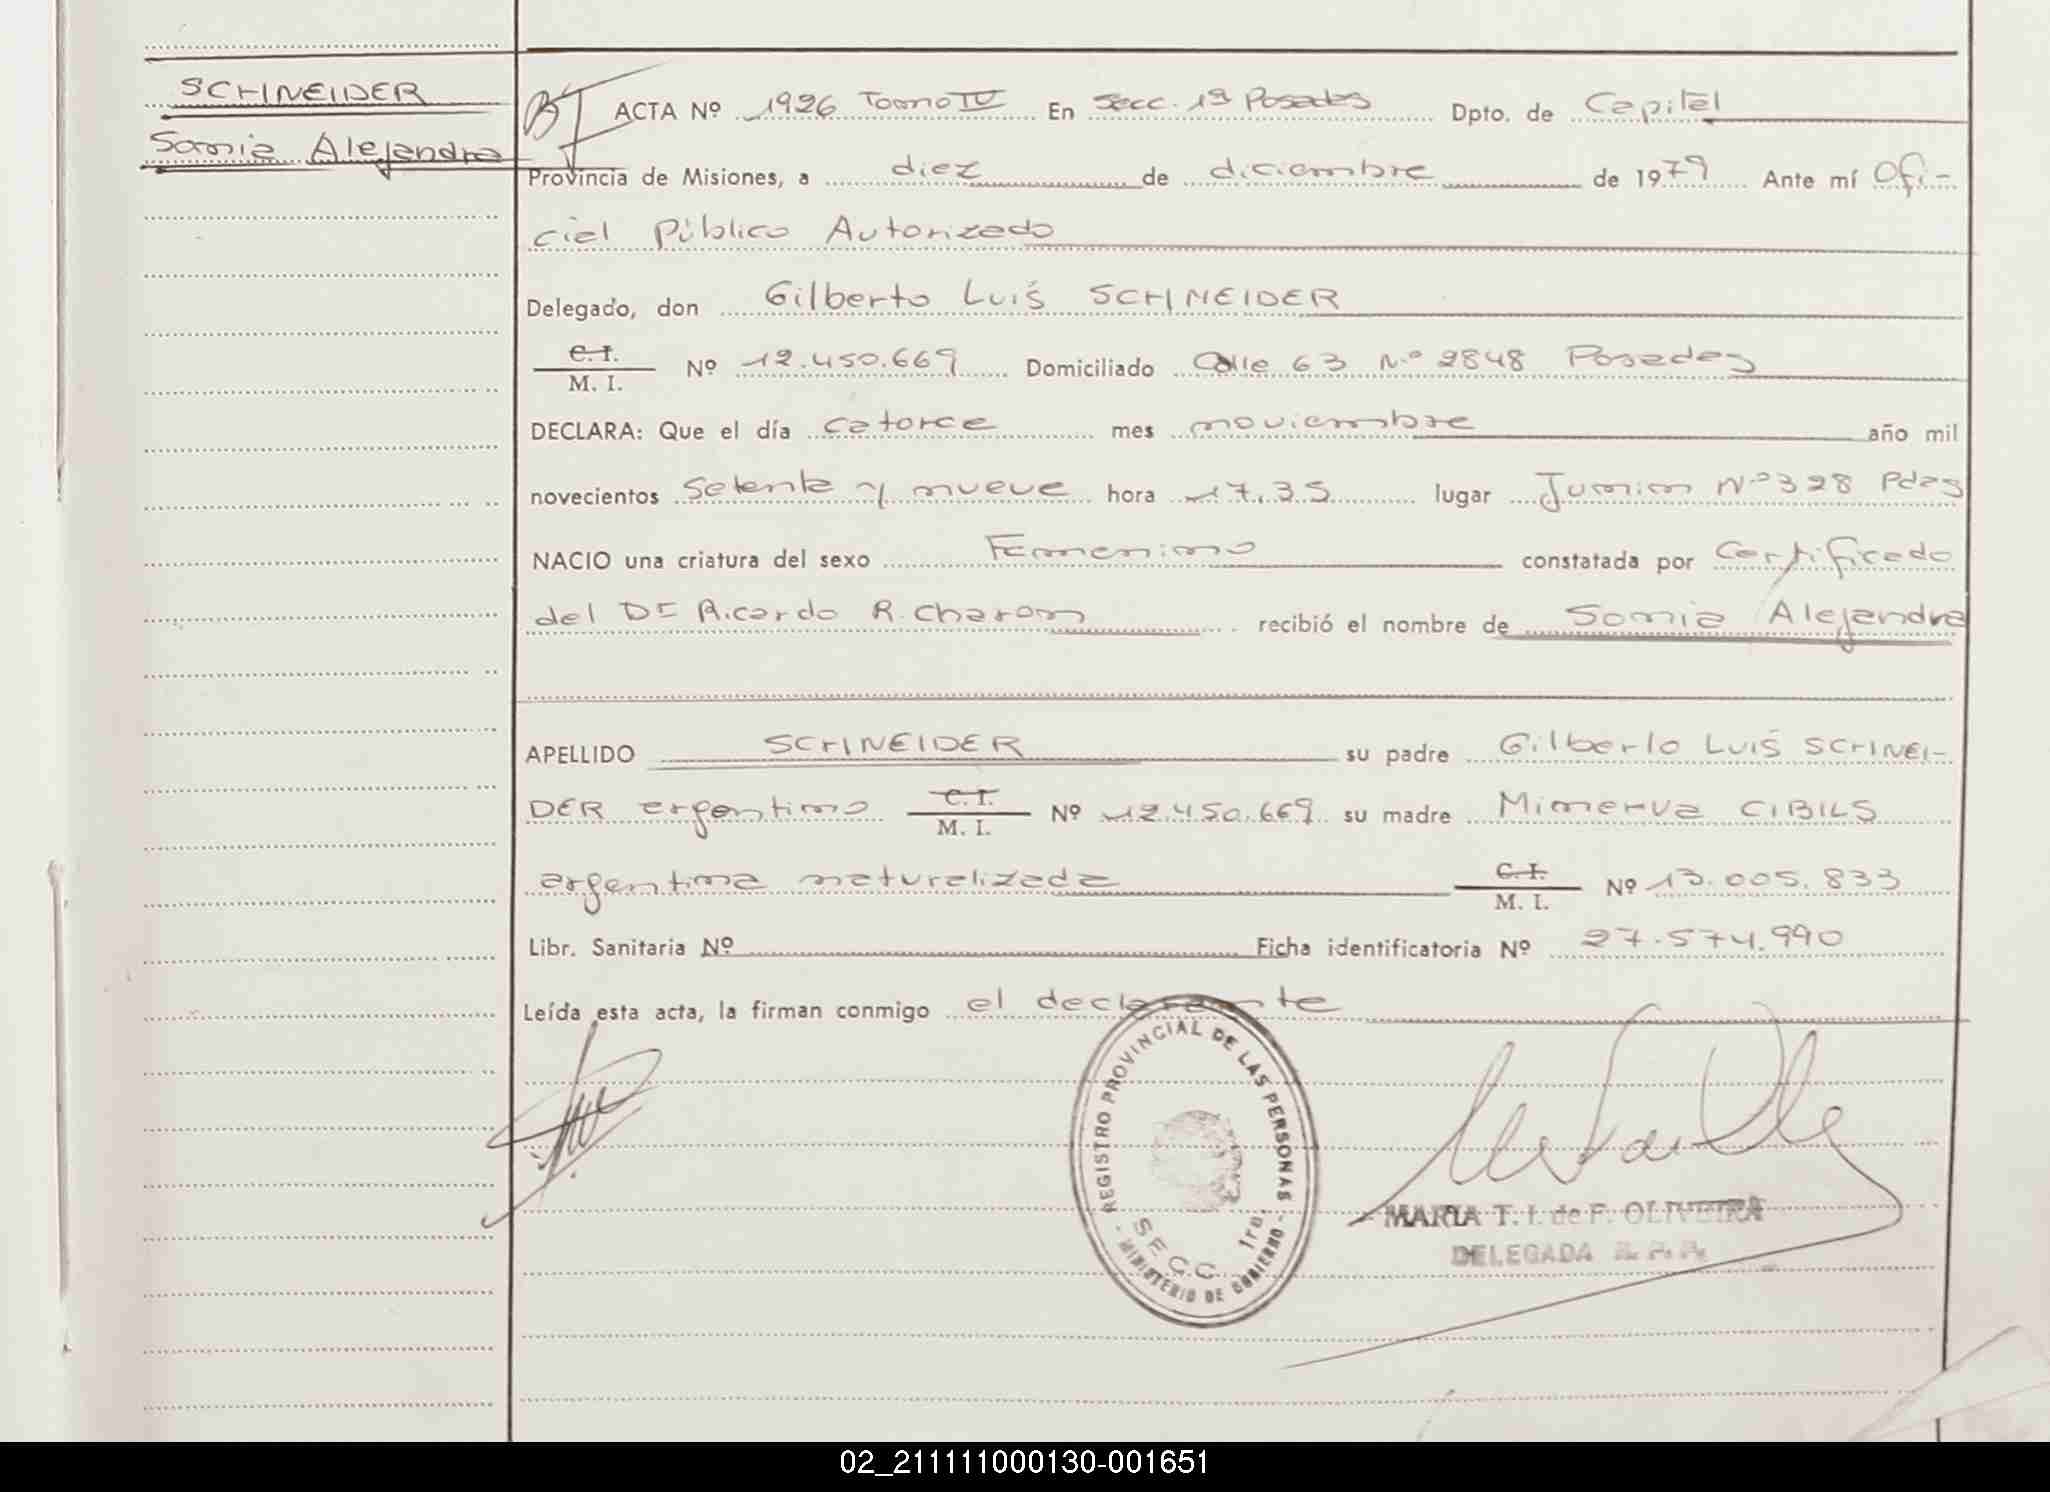 SCHNEIDER
Sonia Alejandra
ACTA Nº 1926 Tomo IV En Secc. 1ª Posadas Dpto. de Capital
Provincia de Misiones, a diez de diciembre de 1979 Ante mí Ofi-
cial Público Autorizado
Delegado, don Gilberto Luis SCHNEIDER
C.I.
M. I. Nº 12.450.669 Domiciliado Calle 63 Nº 2848 Posadas
DECLARA: Que el día catorce mes noviembre año mil
novecientos Setenta y nueve hora 17.35 lugar Junin Nº 328 Pdas
NACIO una criatura del sexo Femenino constatada por Certificado
del Dr Ricardo R. Charon recibió el nombre de Sonia Alejandra
APELLIDO SCHNEIDER su padre Gilberto Luis SCHNEI-
DER argentino C.I. M. I. Nº 12.450.669 su madre Minerva CIBILS
argentina naturalizada C.I. M. I. Nº 13.005.833
Libr. Sanitaria Nº Ficha identificatoria Nº 27.574.990
Leída esta acta, la firman conmigo el declarante
REGISTRO PROVINCIAL DE LAS PERSONAS
SECC. 1ra.
- MINISTERIO DE GOBIERNO -
MARIA T. I. de F. OLIVEIRA
DELEGADA R. P. P.
02_211111000130-001651